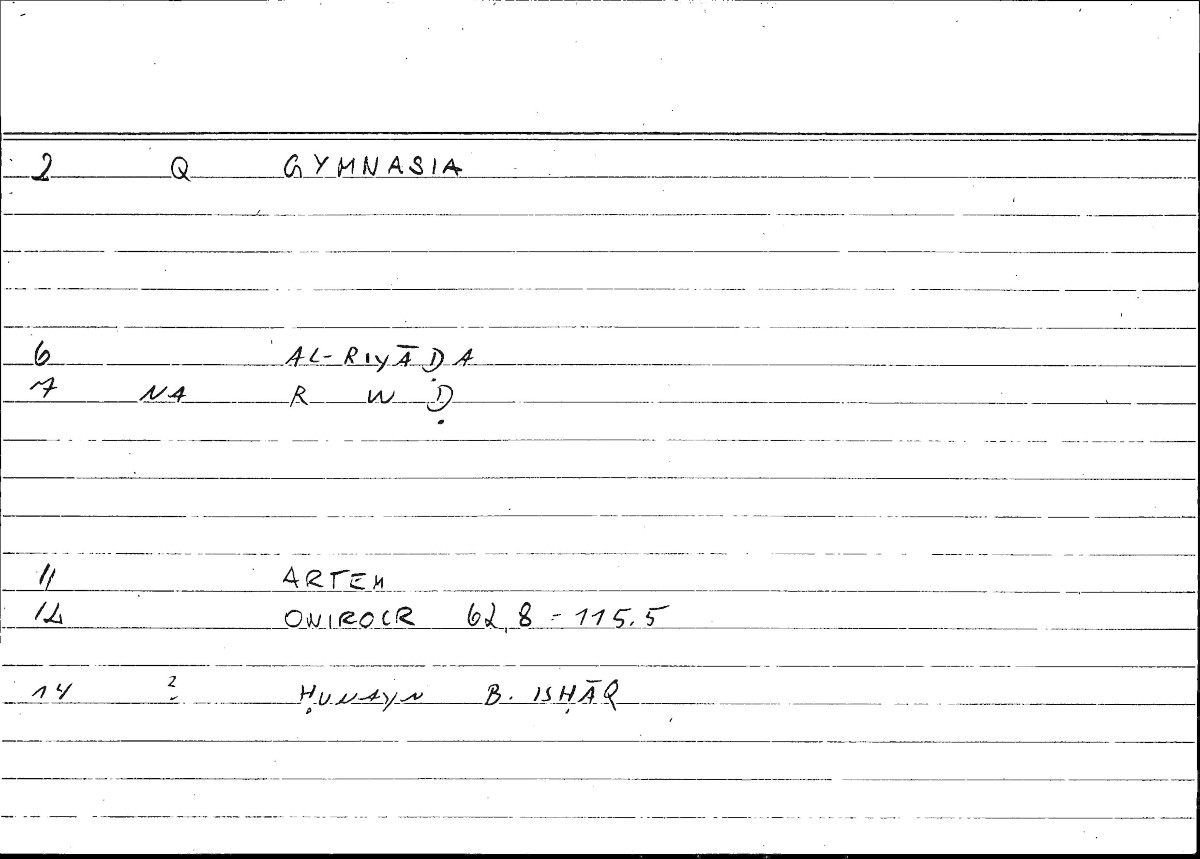 2 Q GYMNASIA
6 AL-RIYĀḌA
7 NA R W Ḍ
11 ARTEM
12 ONIROCR 62,8-115.5
14 2 ḤUNAYN B. ISḤĀQ